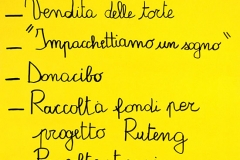 – Vendita delle torte
– "Impacchettiamo un sogno"
– Donacibo
– Raccolta fondi per
progetto Ruteng